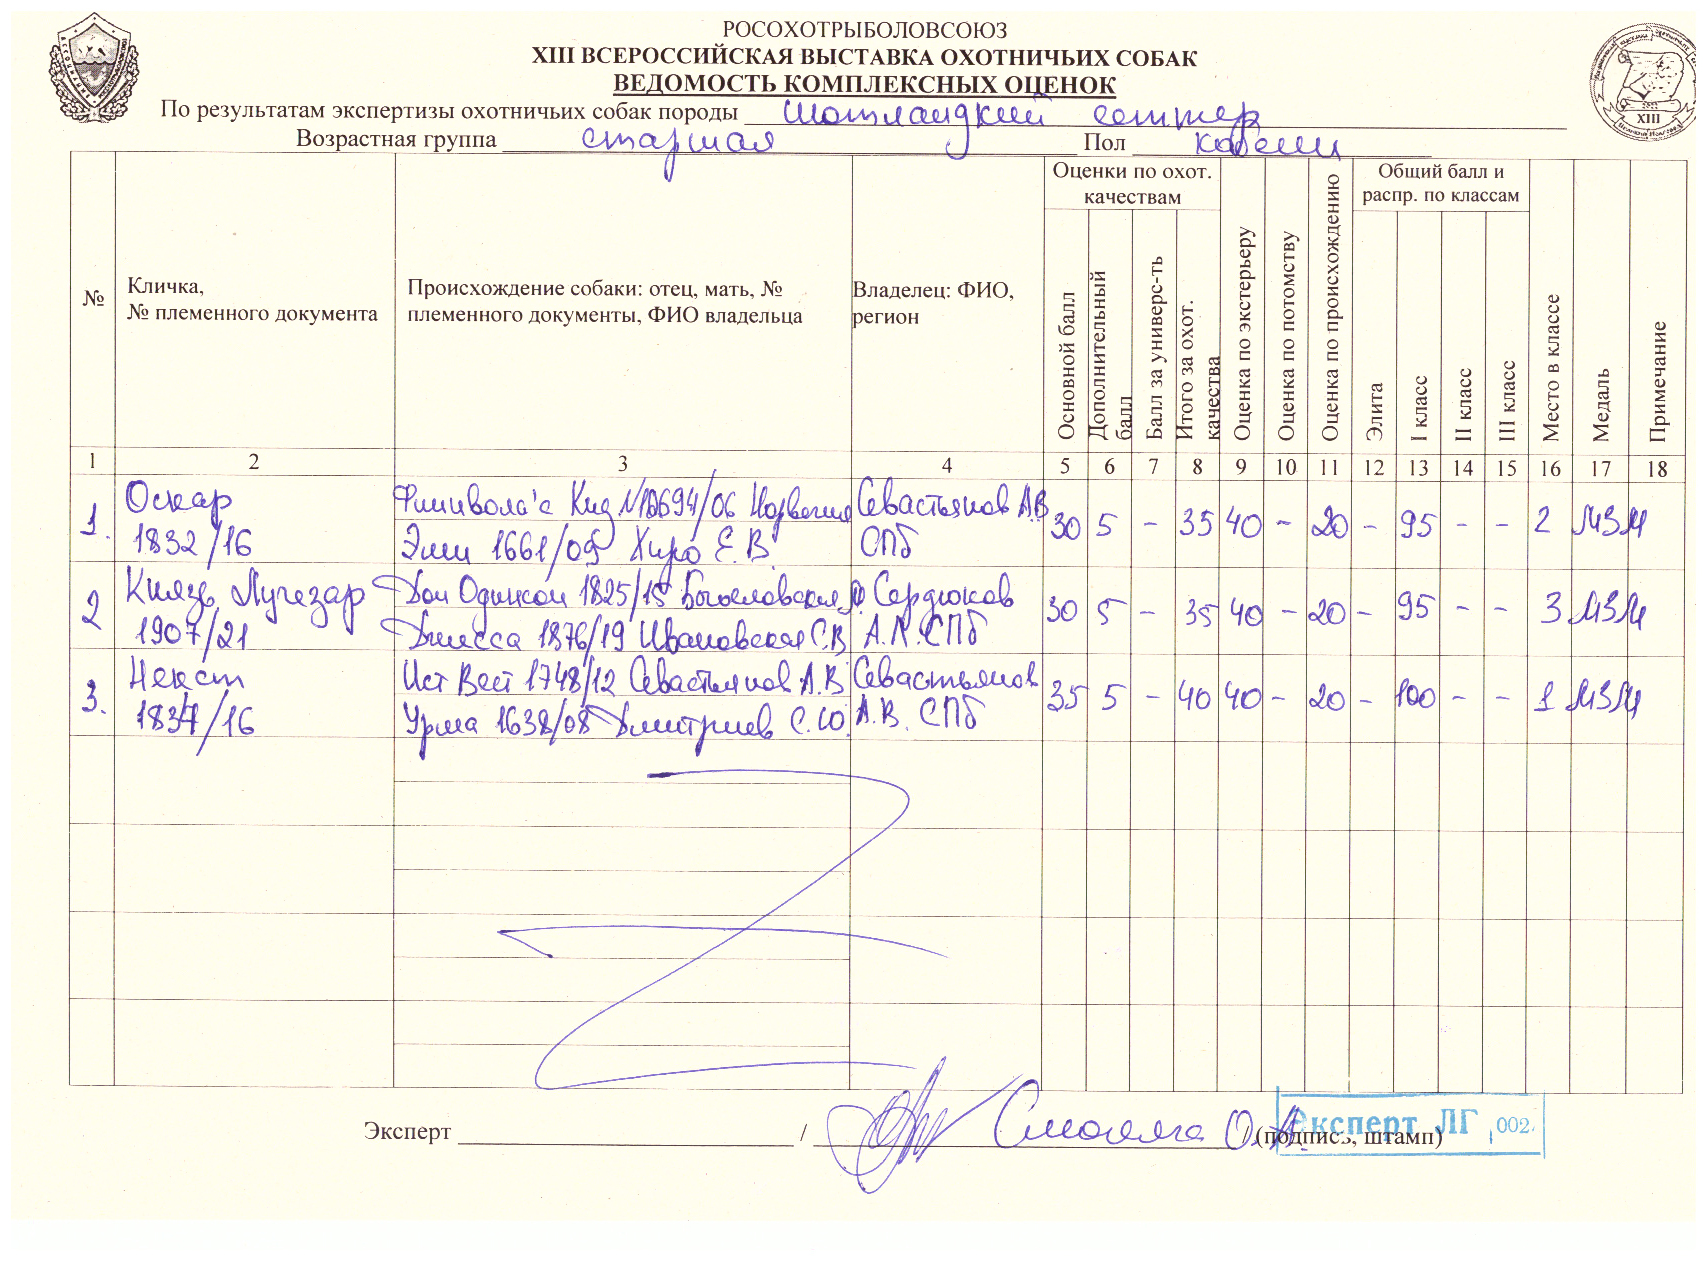 РОСОХОТРЫБОЛОВСОЮЗ
XIII ВСЕРОССИЙСКАЯ ВЫСТАВКА ОХОТНИЧЬИХ СОБАК
ВЕДОМОСТЬ КОМПЛЕКСНЫХ ОЦЕНОК
По результатам экспертизы охотничьих собак породы шотландкий сеттер
Возрастная группа старшая Пол кобели
XIII
№
Кличка,
№ племенного документа
Происхождение собаки: отец, мать, №
племенного документы, ФИО владельца
Владелец: ФИО,
регион
Оценки по охот.
качествам
Основной балл
Дополнительный
балл
Балл за универс-ть
Итого за охот.
качества
Оценка по экстерьеру
Оценка по потомству
Оценка по происхождению
Общий балл и
распр. по классам
Элита
I класс
II класс
III класс
Место в классе
Медаль
Примечание
1 2 3 4 5 6 7 8 9 10 11 12 13 14 15 16 17 18
1. Оскар Кид Норвегия Севастьянов А.В 30 5 - 35 40 - 20 - 95 - - 2 МЗМ
1832/16 Эми 1661/09 Хиро Е.В. СПб
2 Князь Лучезар Дон Одинсон 1825/15 Богословская Сердюков 30 5 - 35 40 - 20 - 95 - - 3 МЗМ
1907/21 1876/19 Ивановская С.В А.Л. СПб
3. Некст Ист Вест 1748/12 Севастьянов А.В Севастьянов 35 5 - 40 40 - 20 - 100 - - 1 МЗМ
1837/16 Урма 1638/08 Дмитриев С.Ю. А.В. СПб
Эксперт / / (подпись, штамп)
Эксперт ЛГ 002